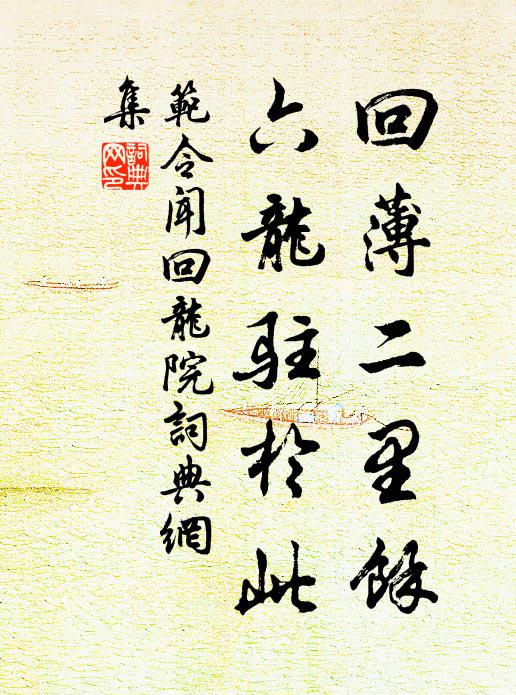 回薄二里餘
六龍駐於此
範令聞回龍院詞典網
集
詞典網印